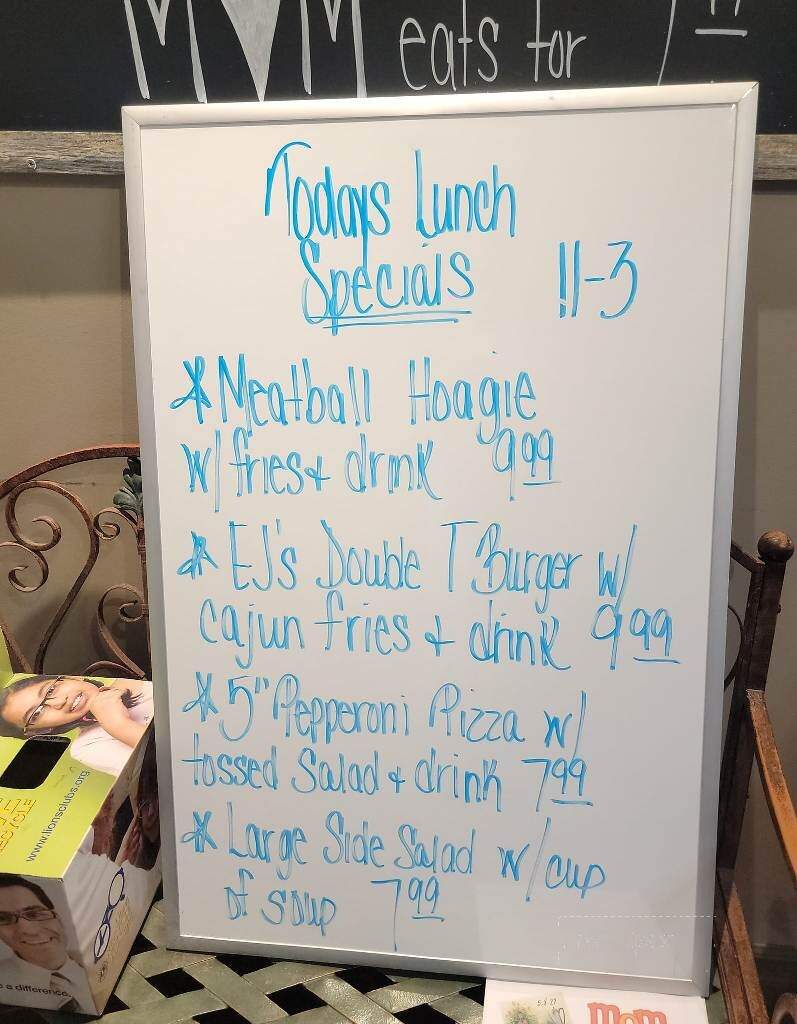 MOM eats for 7
Todays Lunch
Specials 11-3
* Meatball Hoagie
w/ fries & drink 9.99
* EJ's Double T Burger w/
cajun fries & drink 9.99
* 5" Pepperoni Pizza w/
tossed Salad & drink 7.99
* Large Side Salad w/ cup
of soup 7.99
www.lionsclubs.org
a difference.
mom